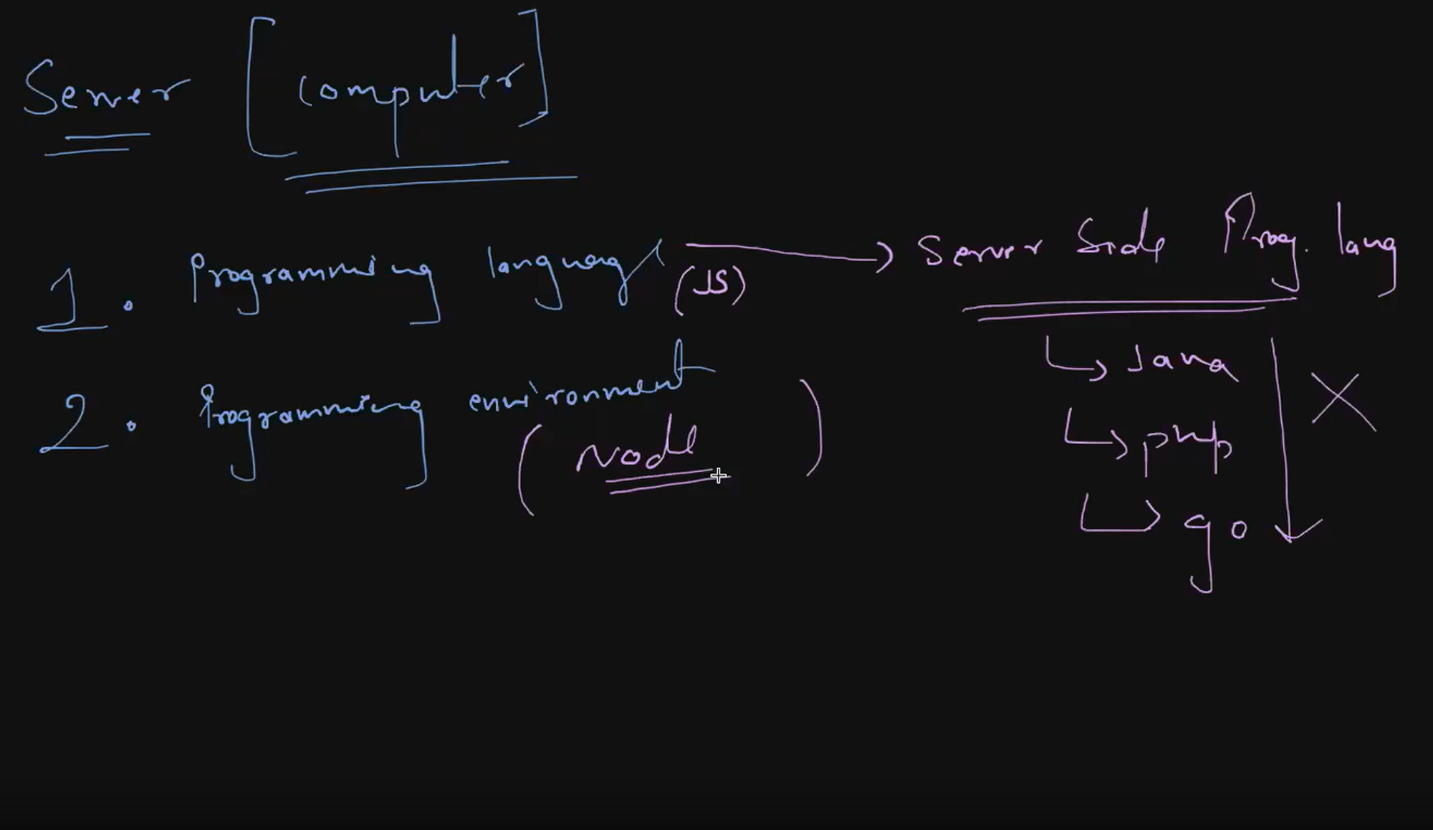 Server [computer]
1. Programming language (JS) → Server Side Prog. lang
↳ Java
2. Programming environment
(Node)
↳ php
↳ go